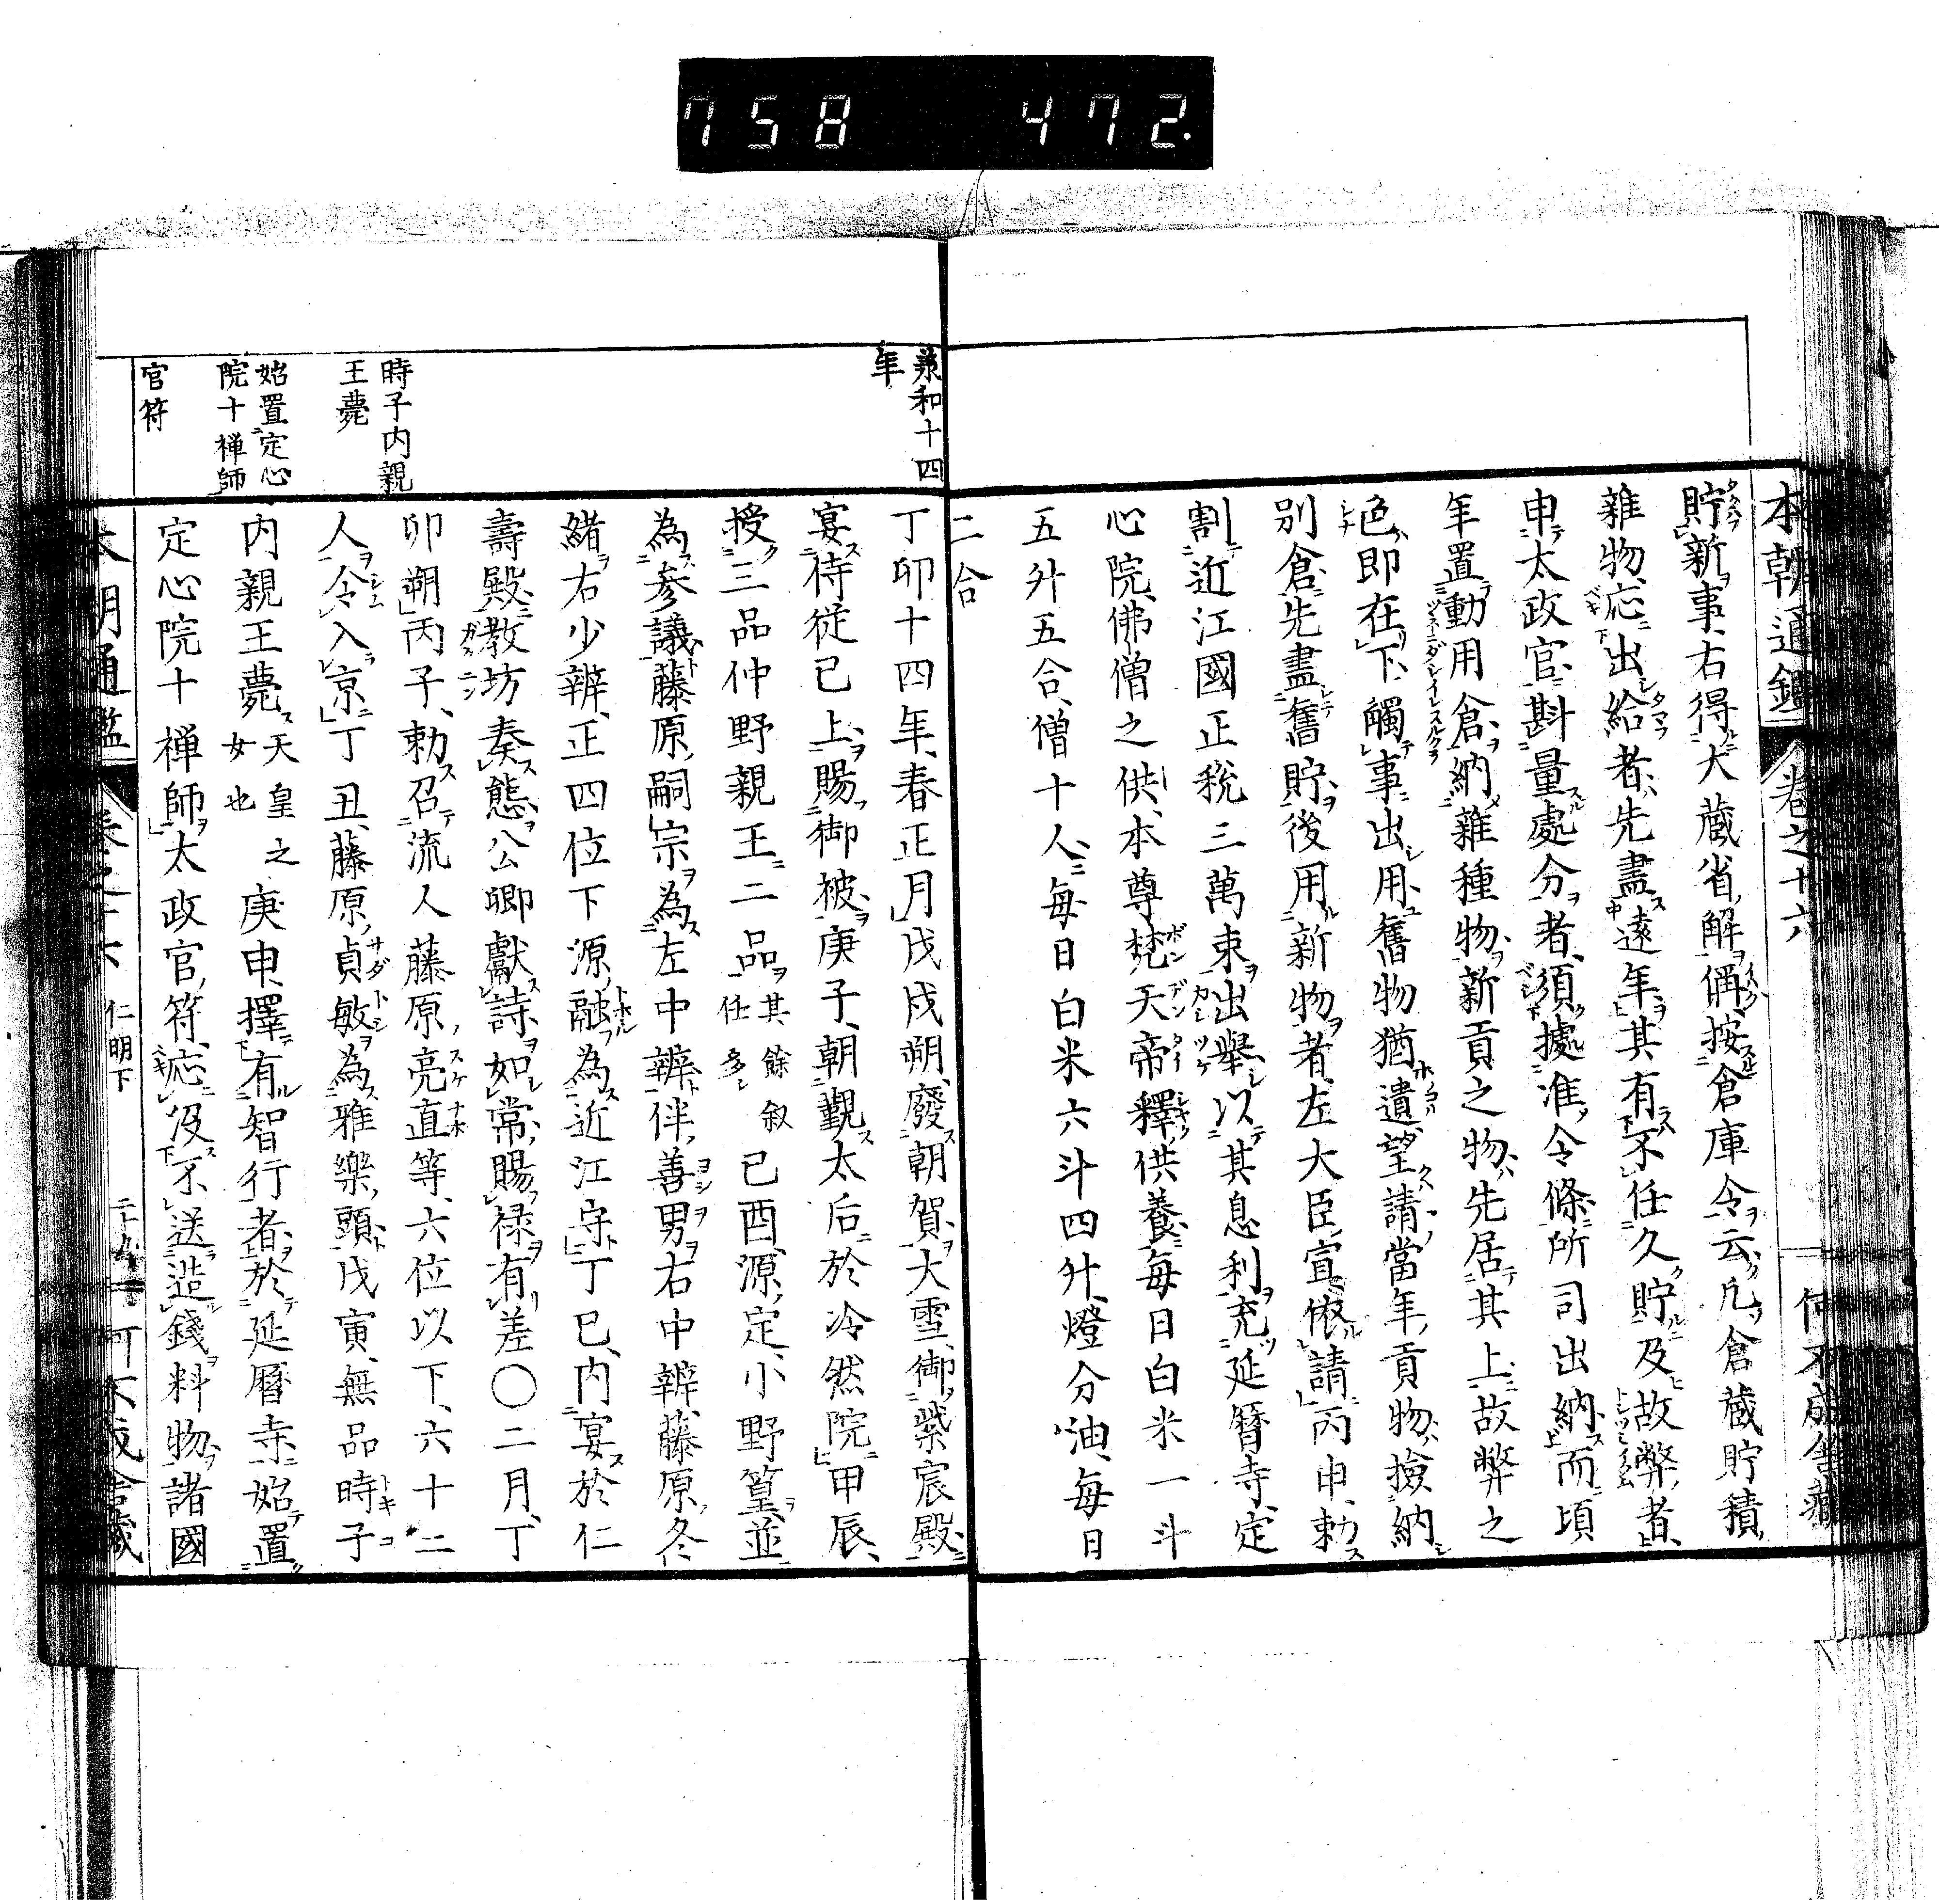 758 472.
本朝通鑑 卷之十六
貯新事、右得大藏省解偁、按倉庫令云、凡倉藏貯積
雜物、応出給者、先盡遠年、其有不任久貯及故弊者、
申太政官、斟量處分者、須據准令條所司出納、而頃
年置動用倉、納雜種物、新貢之物、先居其上、故弊之
色、即在下、觸事出用、舊物猶遺、望請當年貢物、撿納
別倉、先盡舊貯、後用新物者、左大臣宣依請、丙申、勅
割近江國正税三萬束、出舉以其息利、充延暦寺定
心院、佛僧之供、本尊梵天帝釋供養、每日白米一斗
五升五合、僧十人、每日白米六斗四升、燈分油、每日
二合
兼和十四
年
丁卯十四年、春正月戊戌朔、廢朝賀、大雪、御紫宸殿、
宴侍從已上、賜御被、庚子、朝覲太后於冷然院、甲辰、
授三品仲野親王二品、其餘叙任多己酉、源定、小野篁、並
為參議、藤原嗣宗為左中辨、伴善男右中辨、藤原冬
緒右少辨、正四位下源融為近江守、丁巳、内宴於仁
壽殿、教坊奏態、公卿獻詩、如常、賜禄有差〇二月、丁
卯朔、丙子、勅召流人藤原亮直等、六位以下、六十二
人、令入京、丁丑、藤原貞敏為雅樂頭、戊寅、無品時子
内親王薨、天皇之女也庚申、擇有智行者、於延暦寺、始置
定心院十禅師、太政官符、応没不送造錢料物諸國
時子内親
王薨
始置定心
院十禅師
官符
本朝通鑑 卷之十六 仁明下